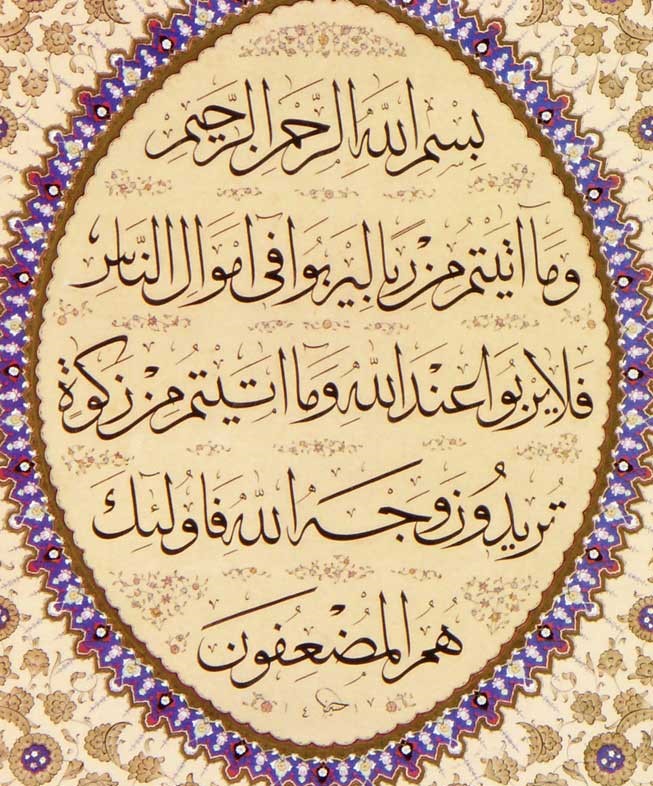 بِسْمِ اللّٰهِ الرَّحْمٰنِ الرَّحِيمِ
وَمَآ اٰتَيْتُمْ مِنْ رِبًا لِيَرْبُوَا فِى اَمْوَالِ النَّاسِ
فَلَا يَرْبُوا عِنْدَ اللّٰهِ وَمَآ اٰتَيْتُمْ مِنْ زَكٰوةٍ
تُرِيدُونَ وَجْهَ اللّٰهِ فَاُولٰٓئِكَ
هُمُ الْمُضْعِفُونَ